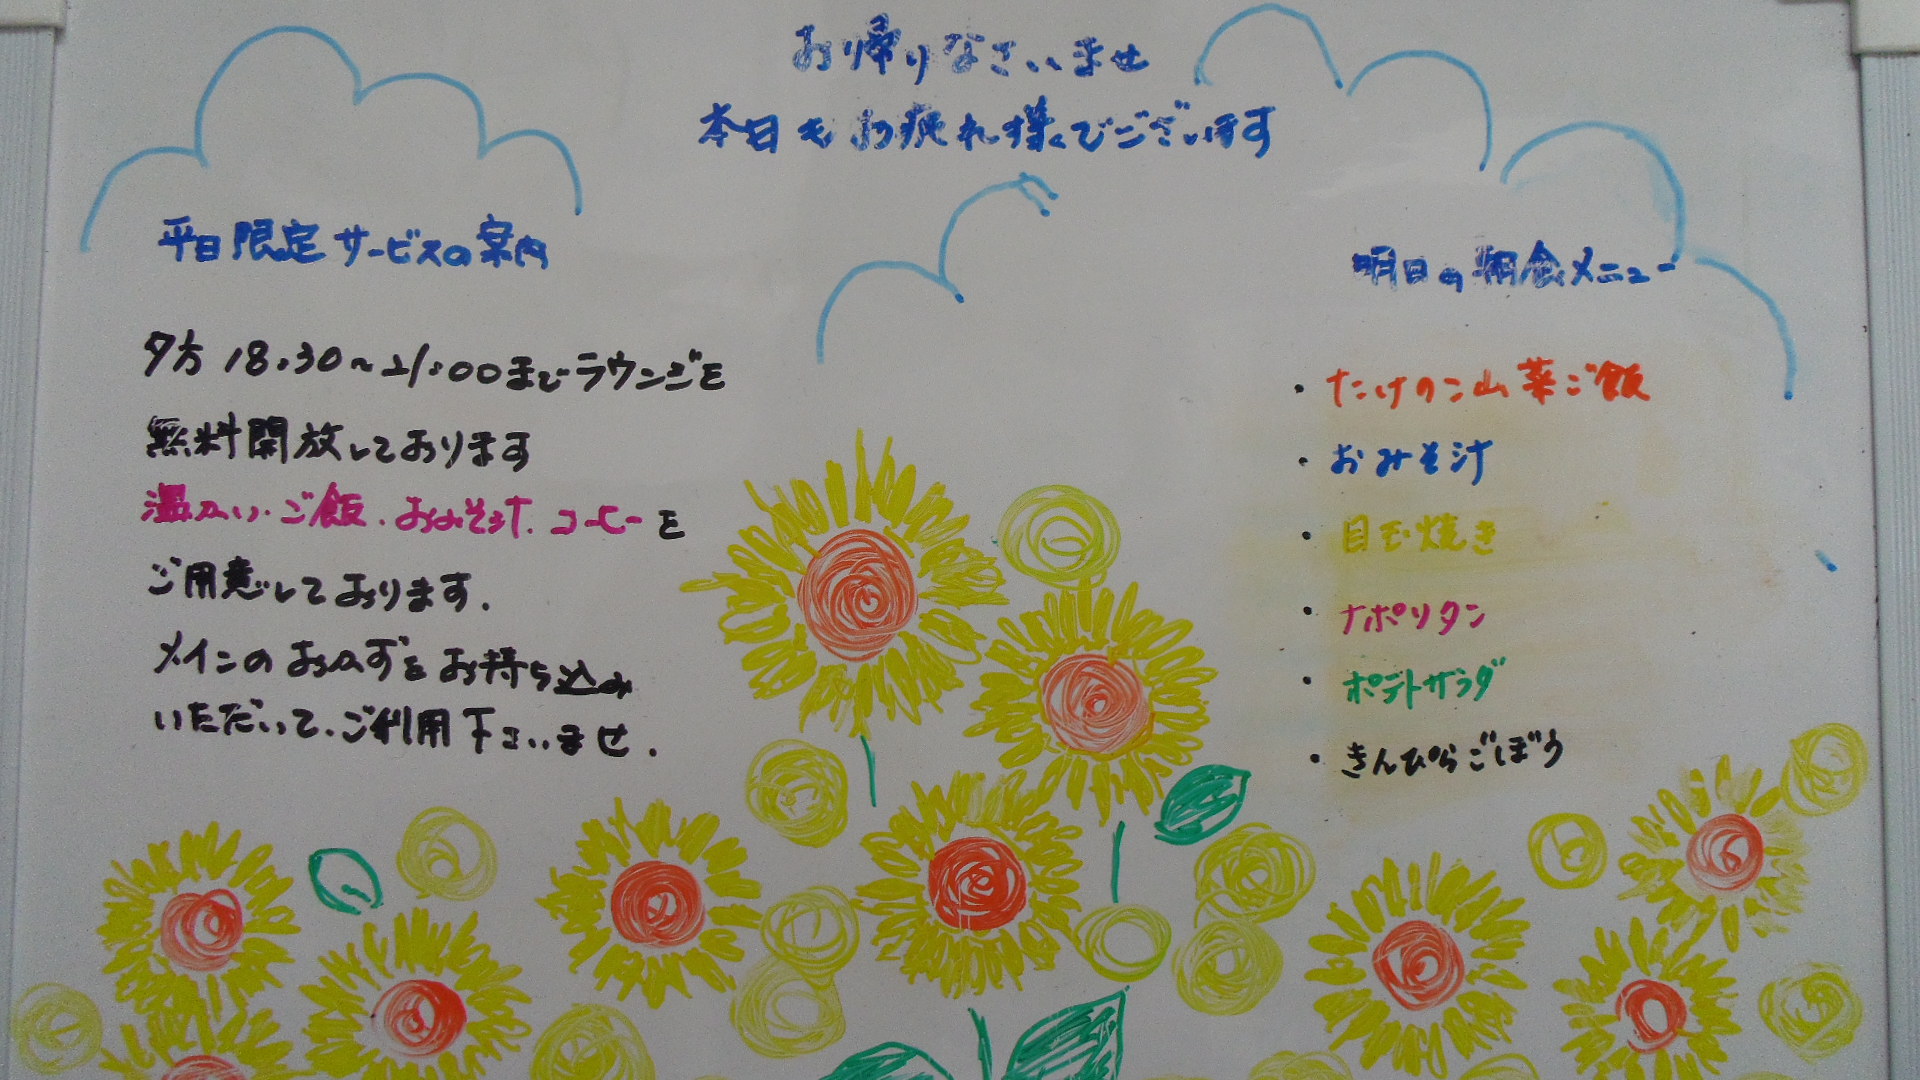 お帰りなさいませ
本日もお疲れ様でございます
平日限定サービスの案内
夕方18:30~21:00までラウンジを
無料開放しております
温かい・ご飯・おみそ汁・コーヒーを
ご用意しております.
メインのおかずをお持ち込み
いただいて、ご利用下さいませ.
明日の朝食メニュー
・たけのこ山菜ご飯
・おみそ汁
・目玉焼き
・ナポリタン
・ポテトサラダ
・きんぴらごぼう